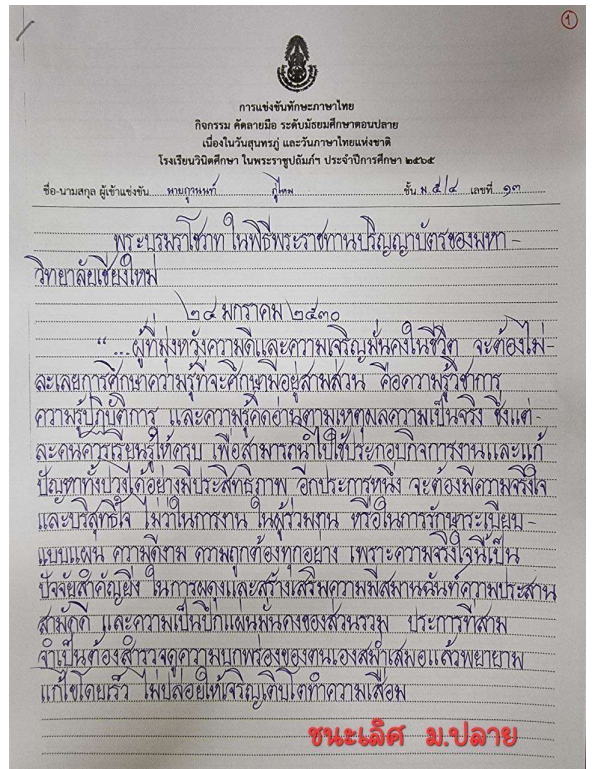 ๑
การแข่งขันทักษะภาษาไทย
กิจกรรม คัดลายมือ ระดับมัธยมศึกษาตอนปลาย
เนื่องในวันสุนทรภู่ และวันภาษาไทยแห่งชาติ
โรงเรียนวินิตศึกษา ในพระราชูปถัมภ์ฯ ประจำปีการศึกษา ๒๕๖๕
ชื่อ-นามสกุล ผู้เข้าแข่งขัน นาย ชั้น ม.๕/๔ เลขที่ ๑๓
พระบรมราโชวาท ในพิธีพระราชทานปริญญาบัตรของมหา-
วิทยาลัยเชียงใหม่
๒๔ มกราคม ๒๕๓๐
“...ผู้ที่มุ่งหวังความดีและความเจริญมั่นคงในชีวิต จะต้องไม่-
ละเลยการศึกษาความรู้ที่จะศึกษามีอยู่สามส่วน คือความรู้วิชาการ
ความรู้ปฏิบัติการ และความรู้คิดอ่านตามเหตุผลความเป็นจริง ซึ่งแต่-
ละคนควรเรียนรู้ให้ครบ เพื่อสามารถนำไปใช้ประกอบกิจการงานและแก้
ปัญหาทั้งปวงได้อย่างมีประสิทธิภาพ อีกประการหนึ่ง จะต้องมีความจริงใจ
และบริสุทธิ์ใจ ไม่ว่าในการงาน ในผู้ร่วมงาน หรือในการรักษาระเบียบ-
แบบแผน ความดีงาม ความถูกต้องทุกอย่าง เพราะความจริงใจนี้เป็น
ปัจจัยสำคัญยิ่ง ในการผดุงและสร้างเสริมความมีสมานฉันท์ความประสาน
สามัคคี และความเป็นปึกแผ่นมั่นคงของส่วนรวม ประการที่สาม
จำเป็นต้องสำรวจดูความบกพร่องของตนเองสม่ำเสมอแล้วพยายาม
แก้ไขโดยเร็ว ไม่ปล่อยให้เจริญเติบโตทำความเสื่อม
ชนะเลิศ ม.ปลาย